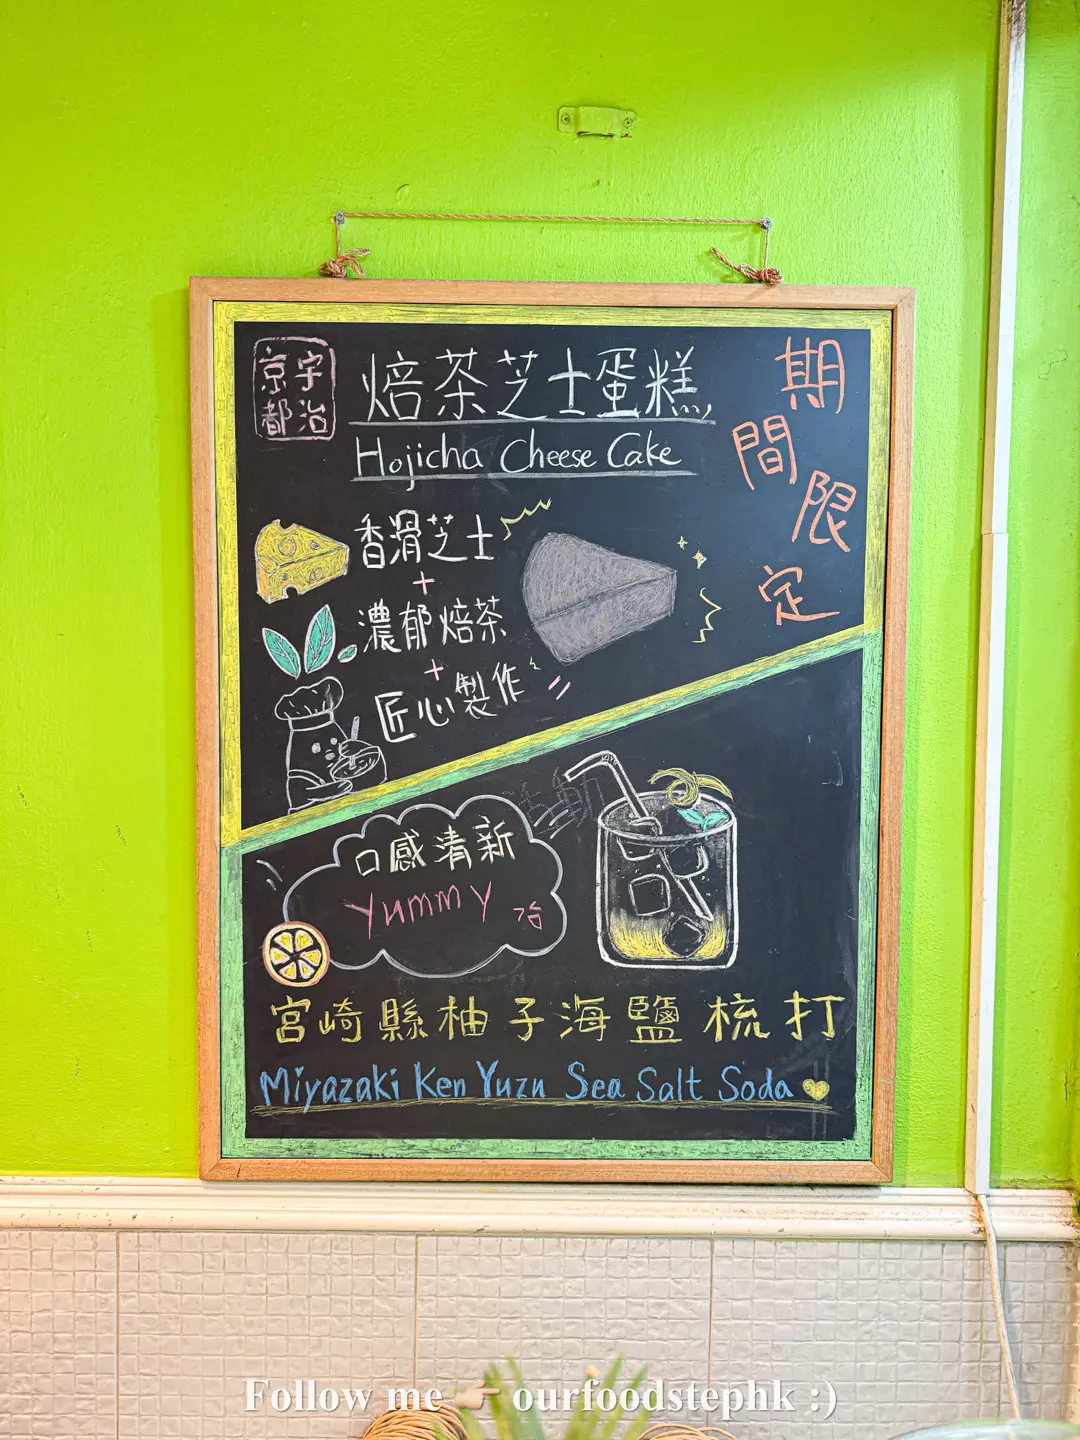 京宇
都治
焙茶芝士蛋糕
Hojicha Cheese Cake
期間限定
香滑芝士
+
濃郁焙茶
+
匠心製作
口感清新
Yummy
宮崎縣柚子海鹽梳打
Miyazaki Ken Yuzu Sea Salt Soda
Follow me ourfoodstephk :)